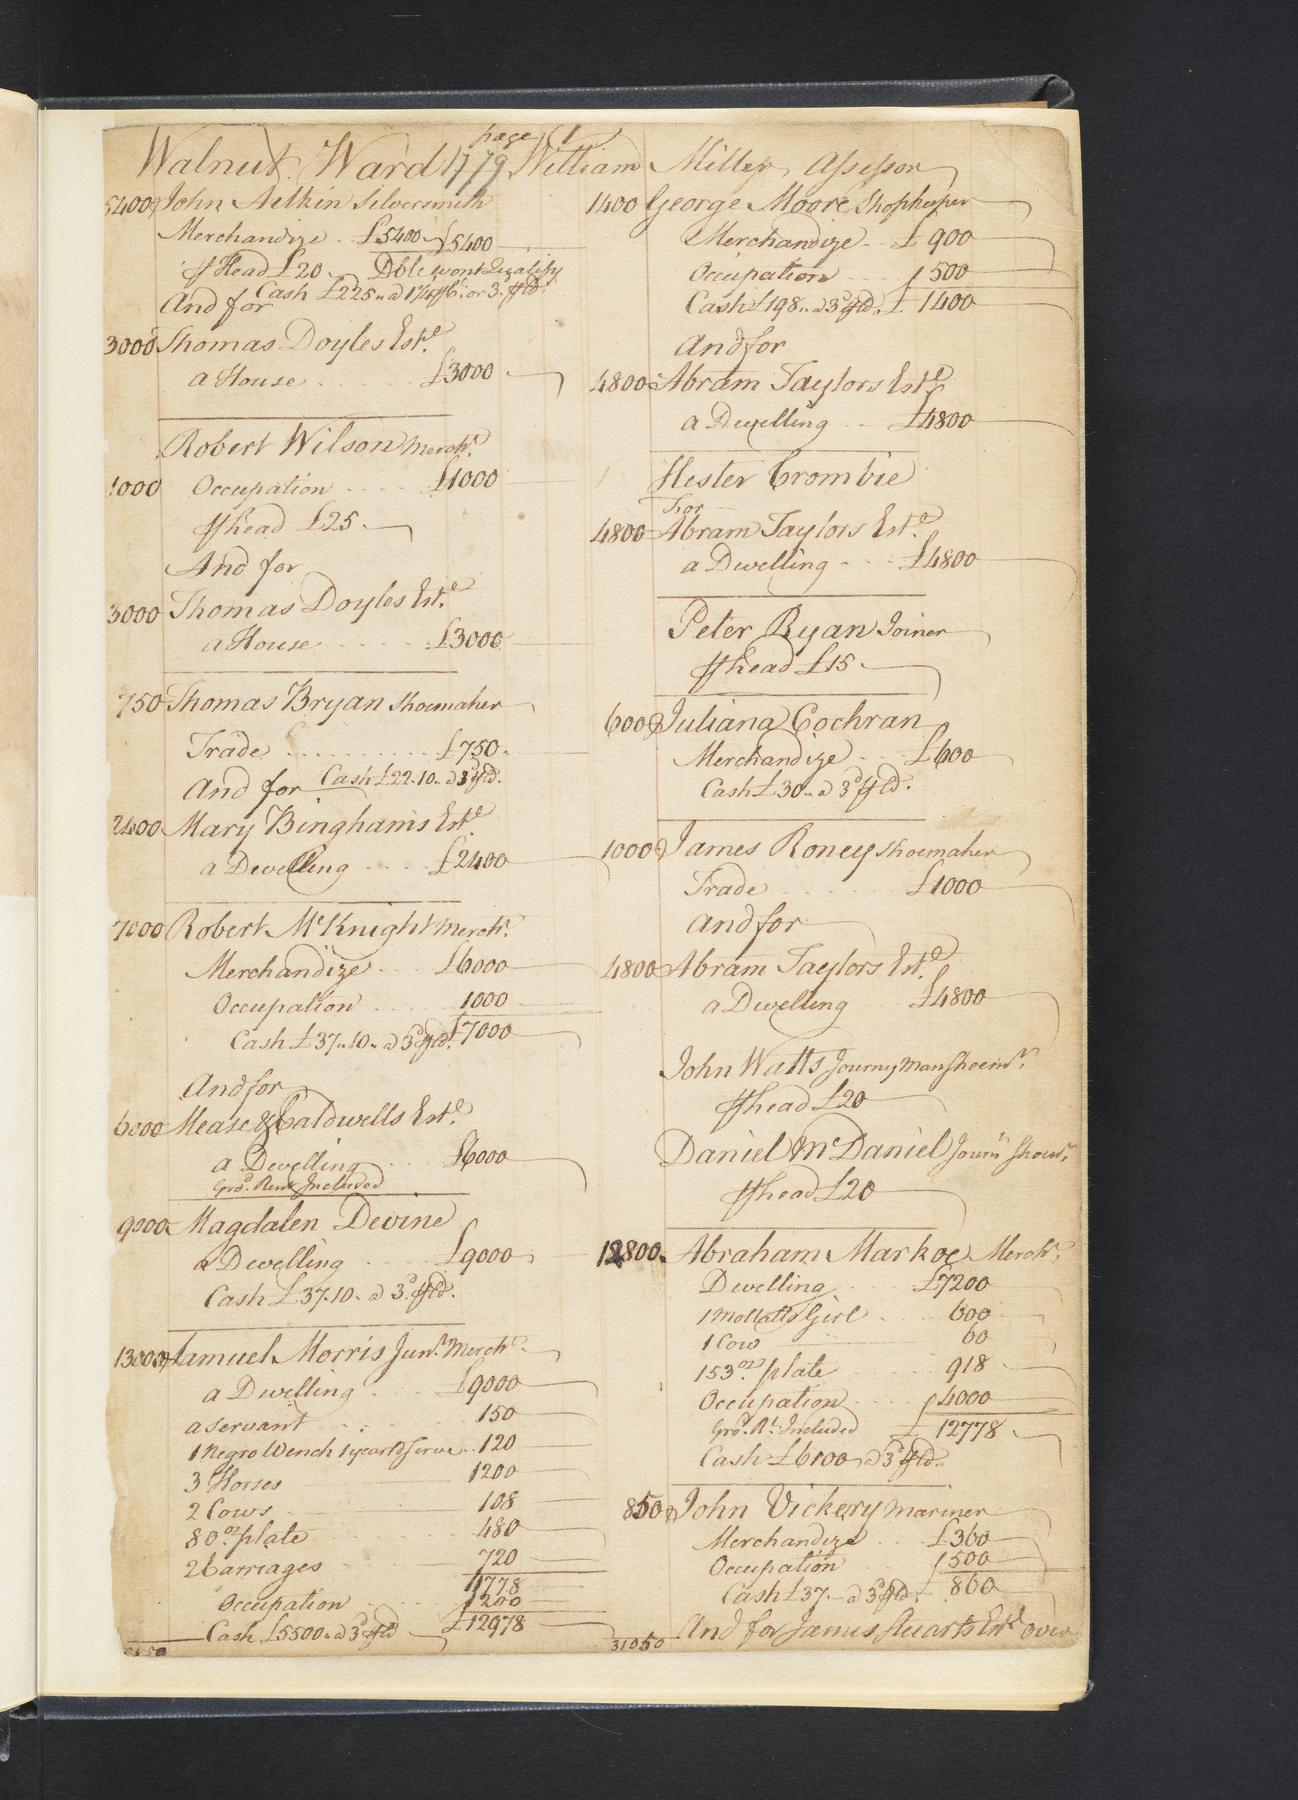 page (1
Walnut Ward 1779 William Miller Assessor
5400 John Aitkin Silversmith
Merchandize £5400 £5400
℔ Head £20 Dble wont Qualify
And for Cash £225
3000 Thomas Doyles Este.
a House £3000
Robert Wilson Mercht.
1000 Occupation £1000
℔ head £25
And for
3000 Thomas Doyles Este.
a House £3000
750 Thomas Bryan Shoemaker
Trade £750
And for Cash £22.10. a 3d ℔ £d.
2400 Mary Binghams Este.
a Dwelling £2400
7000 Robert McKnight Mercht.
Merchandize £6000
Occupation 1000
Cash £37.10. a 3d ℔ £d. £7000
And for
6000 Mease & Caldwells Este.
a Dwelling £6000
Grod. Rent Included
9000 Magdalen Devine
a Dwelling £9000
Cash £37.10. a 3d. ℔ £d.
13000 Samuel Morris Junr. Mercht.
a Dwelling £9000
a servant 150
1 Negro Wench 1 year to serve 120
3 Horses 1200
2 Cows 108
80 oz. plate 480
2 Carriages 720
11778
Occupation 1200
Cash £5500 a 3d ℔ £d £12978
1400 George Moore Shopkeeper
Merchandize £900
Occupation 500
Cash £198 a 3d ℔ £d. £1400
And for
4800 Abram Taylors Este.
a Dwelling £4800
Hester Crombie
For
4800 Abram Taylors Este.
a Dwelling £4800
Peter Ryan Joiner
℔ head £15
600 Juliana Cochran
Merchandize £600
Cash £30 a 3d ℔ £d.
1000 James Roney Shoemaker
Trade £1000
And for
4800 Abram Taylors Este.
a Dwelling £4800
John Watts Journy Man Shoemr.
℔ head £20
Daniel McDaniel Journ Shoemr.
℔ head £20
12800 Abraham Markoe Mercht.
Dwelling £7200
1 Mollatto Girl 600
1 Cow 60
153 oz. plate 918
Occupation 4000
Grod. Rt. Included £12778
Cash £6100 a 3d ℔ £d.
850 John Vickery Mariner
Merchandize £360
Occupation 500
Cash £37 a 3d ℔ £d. £860
31050 And for James Stuarts Este over